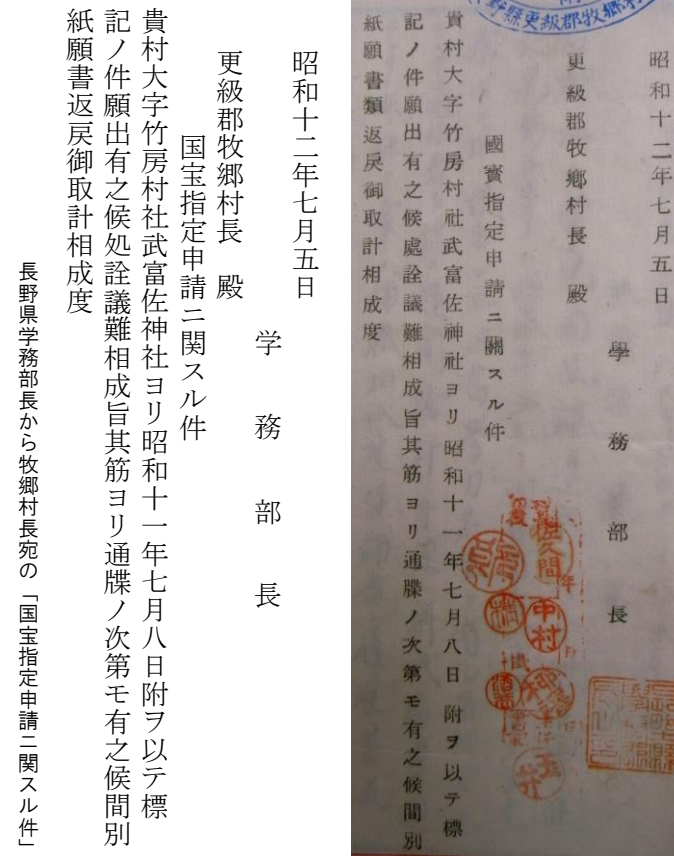 野縣更級郡牧鄕
昭和十二年七月五日
學務部長
更級郡牧鄕村長 殿
國寶指定申請ニ關スル件
貴村大字竹房村社武富佐神社ヨリ昭和十一年七月八日附ヲ以テ標
記ノ件願出有之候處詮議難相成旨其筋ヨリ通牒ノ次第モ有之候間別
紙願書類返戻御取計相成度
佐久間
中村
昭和十二年七月五日
学務部長
更級郡牧郷村長 殿
国宝指定申請ニ関スル件
貴村大字竹房村社武富佐神社ヨリ昭和十一年七月八日附ヲ以テ標
記ノ件願出有之候処詮議難相成旨其筋ヨリ通牒ノ次第モ有之候間別
紙願書返戻御取計相成度
長野県学務部長から牧郷村長宛の「国宝指定申請ニ関スル件」